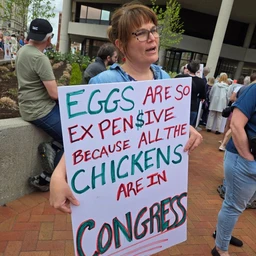 EGGS ARE SO
EXPEN$IVE
BECAUSE ALL THE
CHICKENS
ARE IN
CONGRESS